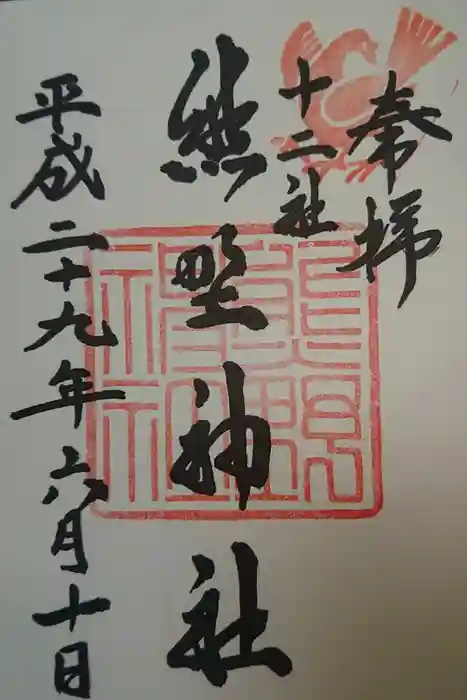 奉拝
十二社
熊野神社
平成二十九年六月十日